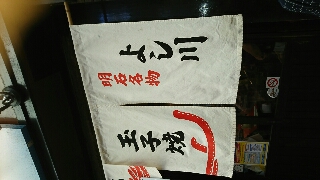 よし川
明石名物
玉子焼